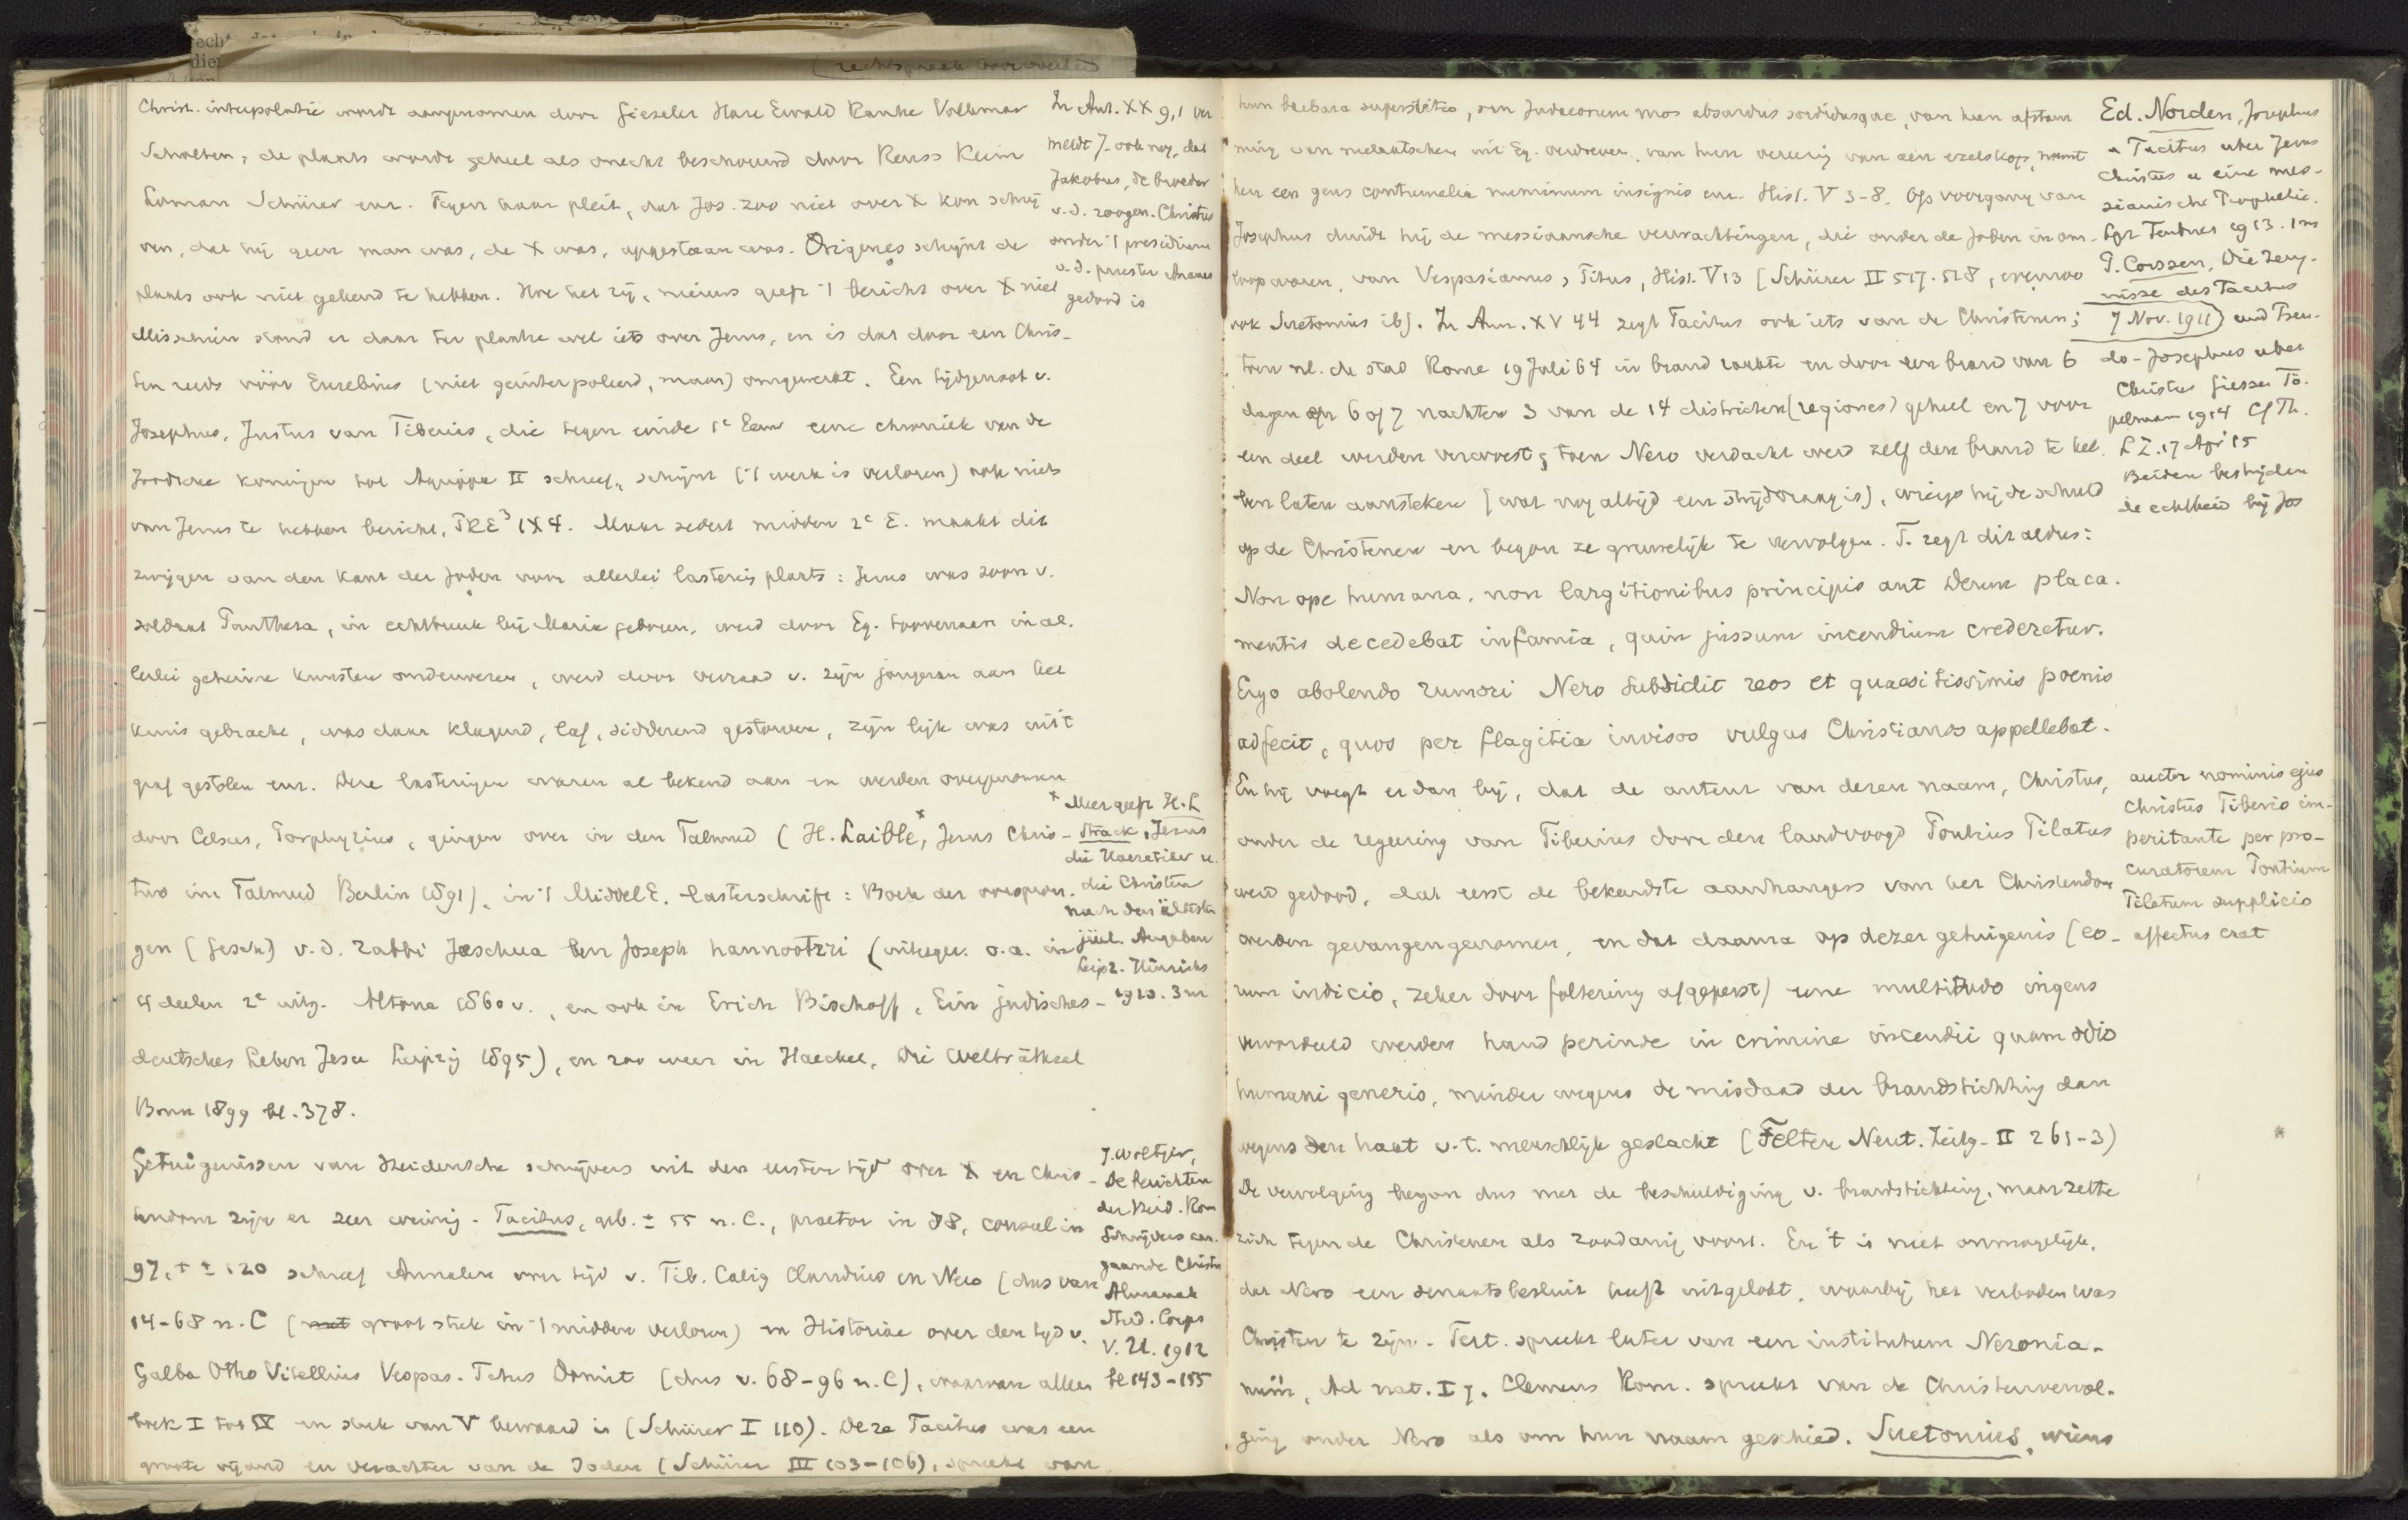 Christ. interpolatie wordt aangenomen door Gieseler Hase Ewald Ranke Volkmar
Scholten; de plaats wordt geheel als onecht beschouwd door Reuss Keim
Loman Schürer enz. Tegen haar pleit, dat Jos. zoo niet over X kon schrij
ven, dat hij geen man was, de X was, opgestaan was. Origenes schijnt de
plaats ook niet gekend te hebben. Hoe het zij, nieuws geeft 't bericht over X niet
Misschien stond er daar ter plaatse wel iets over Jezus, en is dat door een Chris-
ten reeds vóór Eusebius (niet geinterpoleerd, maar) omgewerkt. Een tijdgenoot v.
Josephus, Justus van Tiberias, die tegen einde 1e Eeuw eene chroniek van de
Joodsche koningen tot Agrippa II schreef, schijnt ('t werk is verloren) ook niets
van Jezus te hebben bericht, PRE³ IX 4. Maar sedert midden 2e E. maakt dit
zwijgen van den kant der Joden voor allerlei lasteringen plaats: Jezus was zoon v.
soldaat Panthera, in echtbreuk bij Maria geboren, werd door Eg. toovenaars in al.
lerlei geheime kunsten onderwezen, werd door verraad v. zijn jongeren aan het
kruis gebracht, was daar klagend, laf, sidderend gestorven, zijn lijk was uit 't
graf gestolen enz. Deze lasteringen waren al bekend aan en werden overgenomen
door Celsus, Porphyrius, gingen over in den Talmud (H. Laible,ˣ Jesus Chris-
tus im Talmud Berlin 1891), in 't Middel E. lasterschrift: Boek der oorspron.
gen (Gesch) v. d. rabbi Jeschua ben Joseph hannootzri (uitgeg. o.a. in
4 deelen 2e uitg. Altona 1860 v., en ook in Erich Bischoff, Ein jüdisches-
deutsches Leben Jesu Leipzig 1895), en zoo weer in Haeckel, Die Welträthsel
Bonn 1899 bl. 378.
Getuigenissen van Heidensche schrijvers uit den eersten tijd over X en Chris-
tendom zijn er zeer weinig. Tacitus, geb. ± 55 n. C., praetor in 88, consul in
97, † ± 120 schreef Annalen over tijd v. Tib. Calig Claudius en Nero (dus van
14-68 n. C (met groot stuk in 't midden verloren) en Historiae over den tijd v.
Galba Otho Vitellius Vespas. Titus Domit (dus v. 68-96 n. C), waarvan alleen
boek I tot IV en stuk van V bewaard is (Schürer I 110). Deze Tacitus was een
groote vijand en verachter van de Joden (Schürer III 103-106), spreekt van
In Ant. XX 9,1 ver
meldt J. ook nog, dat
Jakobus, de broeder
v. d. zoogen. Christus
onder 't presidium
v. d. priester Ananus
gedood is
ˣ Meer geeft H. L
Strack, Jesus
die Haeretiker u.
die Christen
nach den ältesten
jüd. Angaben
Leipz. Hinrichs
1910. 3 m
J. Woltjer,
De berichten
der heid. Rom
Schrijvers aan.
gaande Christus
Almanak
Stud. Corps
V. U. 1912
bl 143-155
hun barbara superstitio, een Judaeorum mos absurdus sordidusque, van hun afstam
ming van melaatschen uit Eg. verdreven, van hun vereering van een ezelskop, noemt
hen een gens contumelia numinum insignis enz. Hist. V 3-8. Op voorgang van
Josephus duidt hij de messiaansche verwachtingen, die onder de Joden in om-
loop waren, van Vespasianus, Titus, Hist. V 13 (Schürer II 517. 518, evenzoo
ook Suetonius ib). In Ann. XV 44 zegt Tacitus ook iets van de Christenen;
toen nl. de stad Rome 19 Juli 64 in brand raakte en door een brand van 6
dagen en 6 of 7 nachten 3 van de 14 districten (regiones) geheel en 7 voor
een deel werden verwoest; toen Nero verdacht werd zelf den brand te heb.
ben laten aansteken (wat nog altijd een strijdvraag is), wierp hij de schuld
op de Christenen en begon ze gruwelijk te vervolgen. T. zegt dit aldus:
Non ope humana, non largitionibus principis aut Deum placa.
mentis decedebat infamia, quin jussum incendium crederetur.
Ergo abolendo rumori Nero subdidit reos et quaesitissimis poenis
adfecit, quos per flagitia invisos vulgus Christianos appellebat.
En hij voegt er dan bij, dat de auteur van dezen naam, Christus,
onder de regeering van Tiberius door den landvoogd Pontius Pilatus
werd gedood, dat eerst de bekendste aanhangers van het Christendom
werden gevangengenomen, en dat daarna op dezer getuigenis (eo-
rum indicio, zeker door foltering afgeperst) eene multitudo ingens
veroordeeld werden haud perinde in crimine incendii quam odio
humani generis, minder wegens de misdaad der brandstichting dan
wegens den haat v. t. menschlijk geslacht (Felten Neut. Zeitg. II 261-3)
De vervolging begon dus met de beschuldiging v. brandstichting, maar zette
zich tegen de Christenen als zoodanig voort. En 't is niet onmogelijk,
dat Nero een senaatsbesluit heeft uitgelokt, waarbij het verboden was
Christen te zijn. Tert. spreekt later van een institutum Neronia-
num, Ad nat. I 7. Clemens Rom. spreekt van de Christenvervol.
ging onder Nero als om hun naam geschied. Suetonius, wiens
Ed. Norden, Josephus
u Tacitus uber Jesus
Christus u eine mes-
sianische Prophetie.
Lpz Teubner 1913. 1 m
P. Corssen, Die Zeug-
nisse des Tacitus
7 Nov. 1911) und Pseu-
do-Josephus uber
Christus Giessen Tö-
pelmann 1914 Cf Th.
L Z. 17 Apr 15
Beiden bestrijden
de echtheid bij Jos
auctor nominis ejus
Christus Tiberio im-
peritante per pro-
curatorem Pontium
Pilatum supplicio
affectus erat